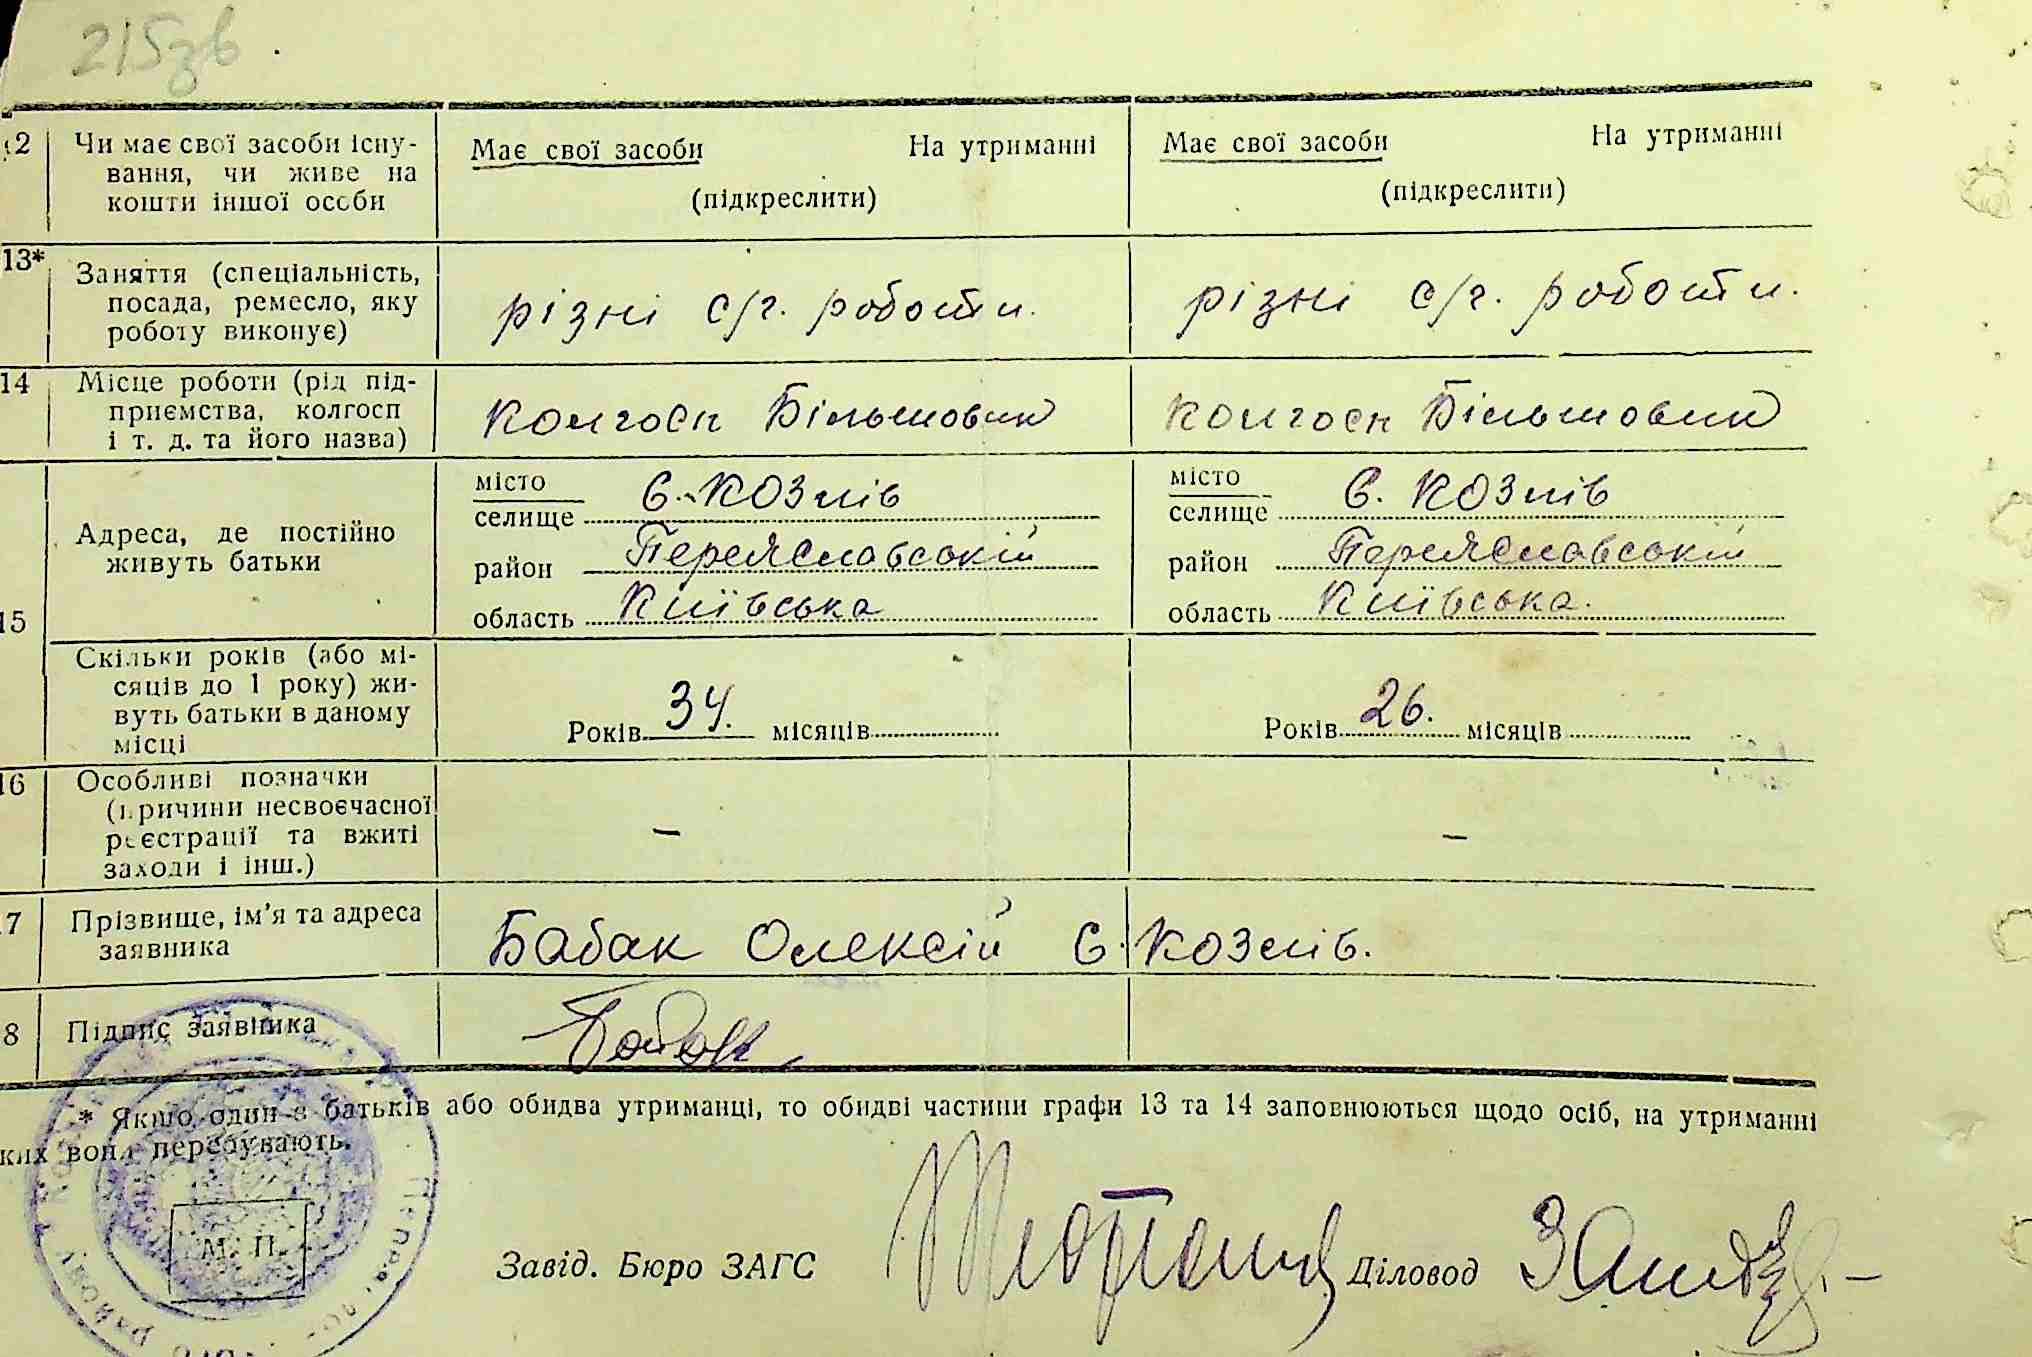 215зв
12 Чи має свої засоби існу-
вання, чи живе на
кошти іншої особи
Має свої засоби На утриманні
(підкреслити)
Має свої засоби На утриманні
(підкреслити)
13* Заняття (спеціальність,
посада, ремесло, яку
роботу виконує)
різні с/г. роботи.
різні с/г. роботи.
14 Місце роботи (рід під-
приємства, колгосп
і т. д. та його назва)
колгосп Більшовик
колгосп Більшовик
15 Адреса, де постійно
живуть батьки
місто
селище с. козлів
район Переяславській
область Київська
місто
селище с. козлів
район Переяславській
область Київська.
Скільки років (або мі-
сяців до 1 року) жи-
вуть батьки в даному
місці
Років 34. місяців
Років 26. місяців
16 Особливі позначки
(причини несвоєчасної
реєстрації та вжиті
заходи і інш.)
–
–
17 Прізвище, ім'я та адреса
заявника
Бабак Олексій с. козлів.
18 Підпис заявника
Бабак
* Якщо один з батьків або обидва утриманці, то обидві частини графи 13 та 14 заповнюються щодо осіб, на утриманні
яких вони перебувають.
М. П.
Завід. Бюро ЗАГС
Діловод
району